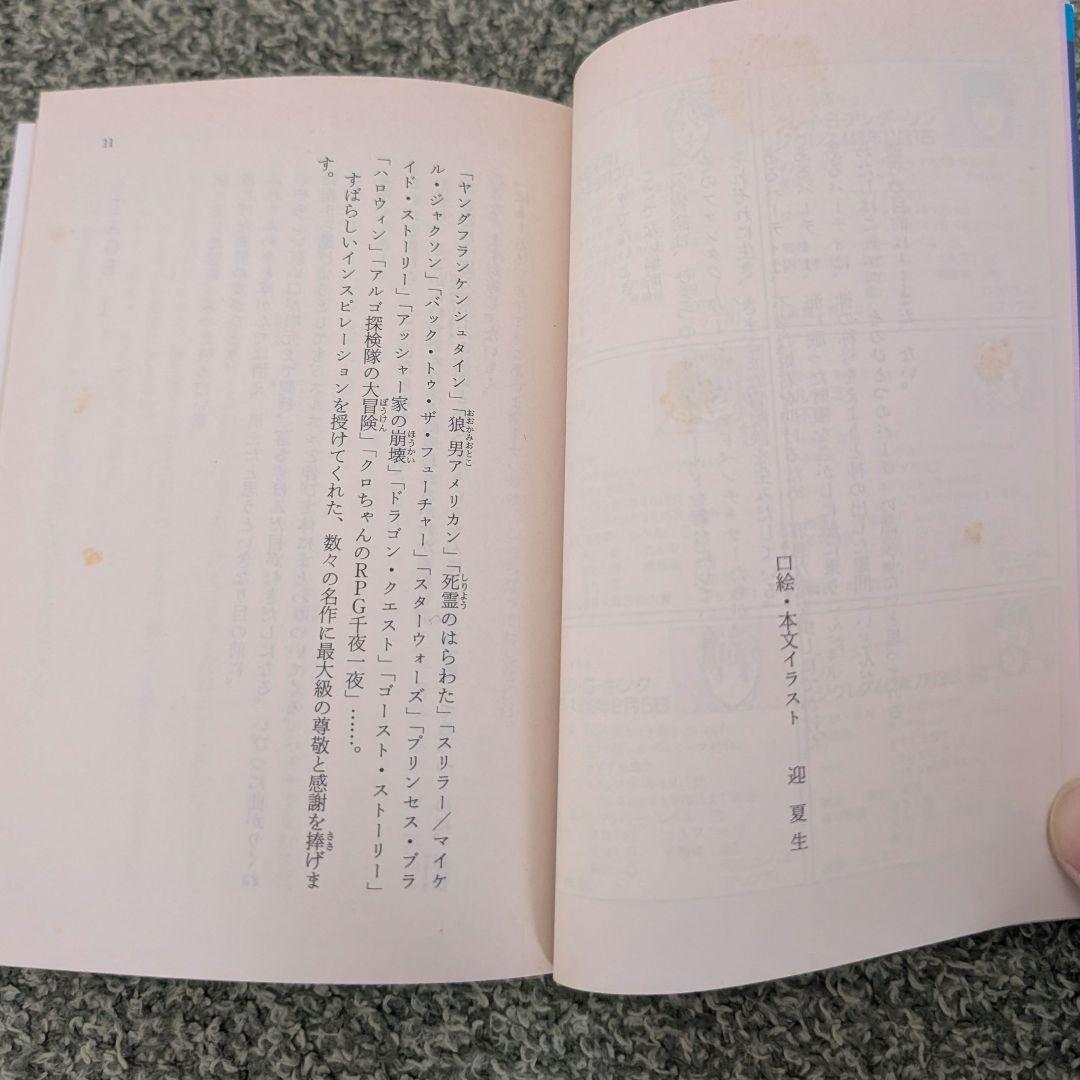 口絵・本文イラスト　迎 夏生
「ヤングフランケンシュタイン」「狼男アメリカン」「死霊のはらわた」「スリラー／マイケ
ル・ジャクソン」「バック・トゥ・ザ・フューチャー」「スターウォーズ」「プリンセス・ブラ
イド・ストーリー」「アッシャー家の崩壊」「ドラゴン・クエスト」「ゴースト・ストーリー」
「ハロウィン」「アルゴ探検隊の大冒険」「クロちゃんのRPG千夜一夜」……。
すばらしいインスピレーションを授けてくれた、数々の名作に最大級の尊敬と感謝を捧げま
す。
11